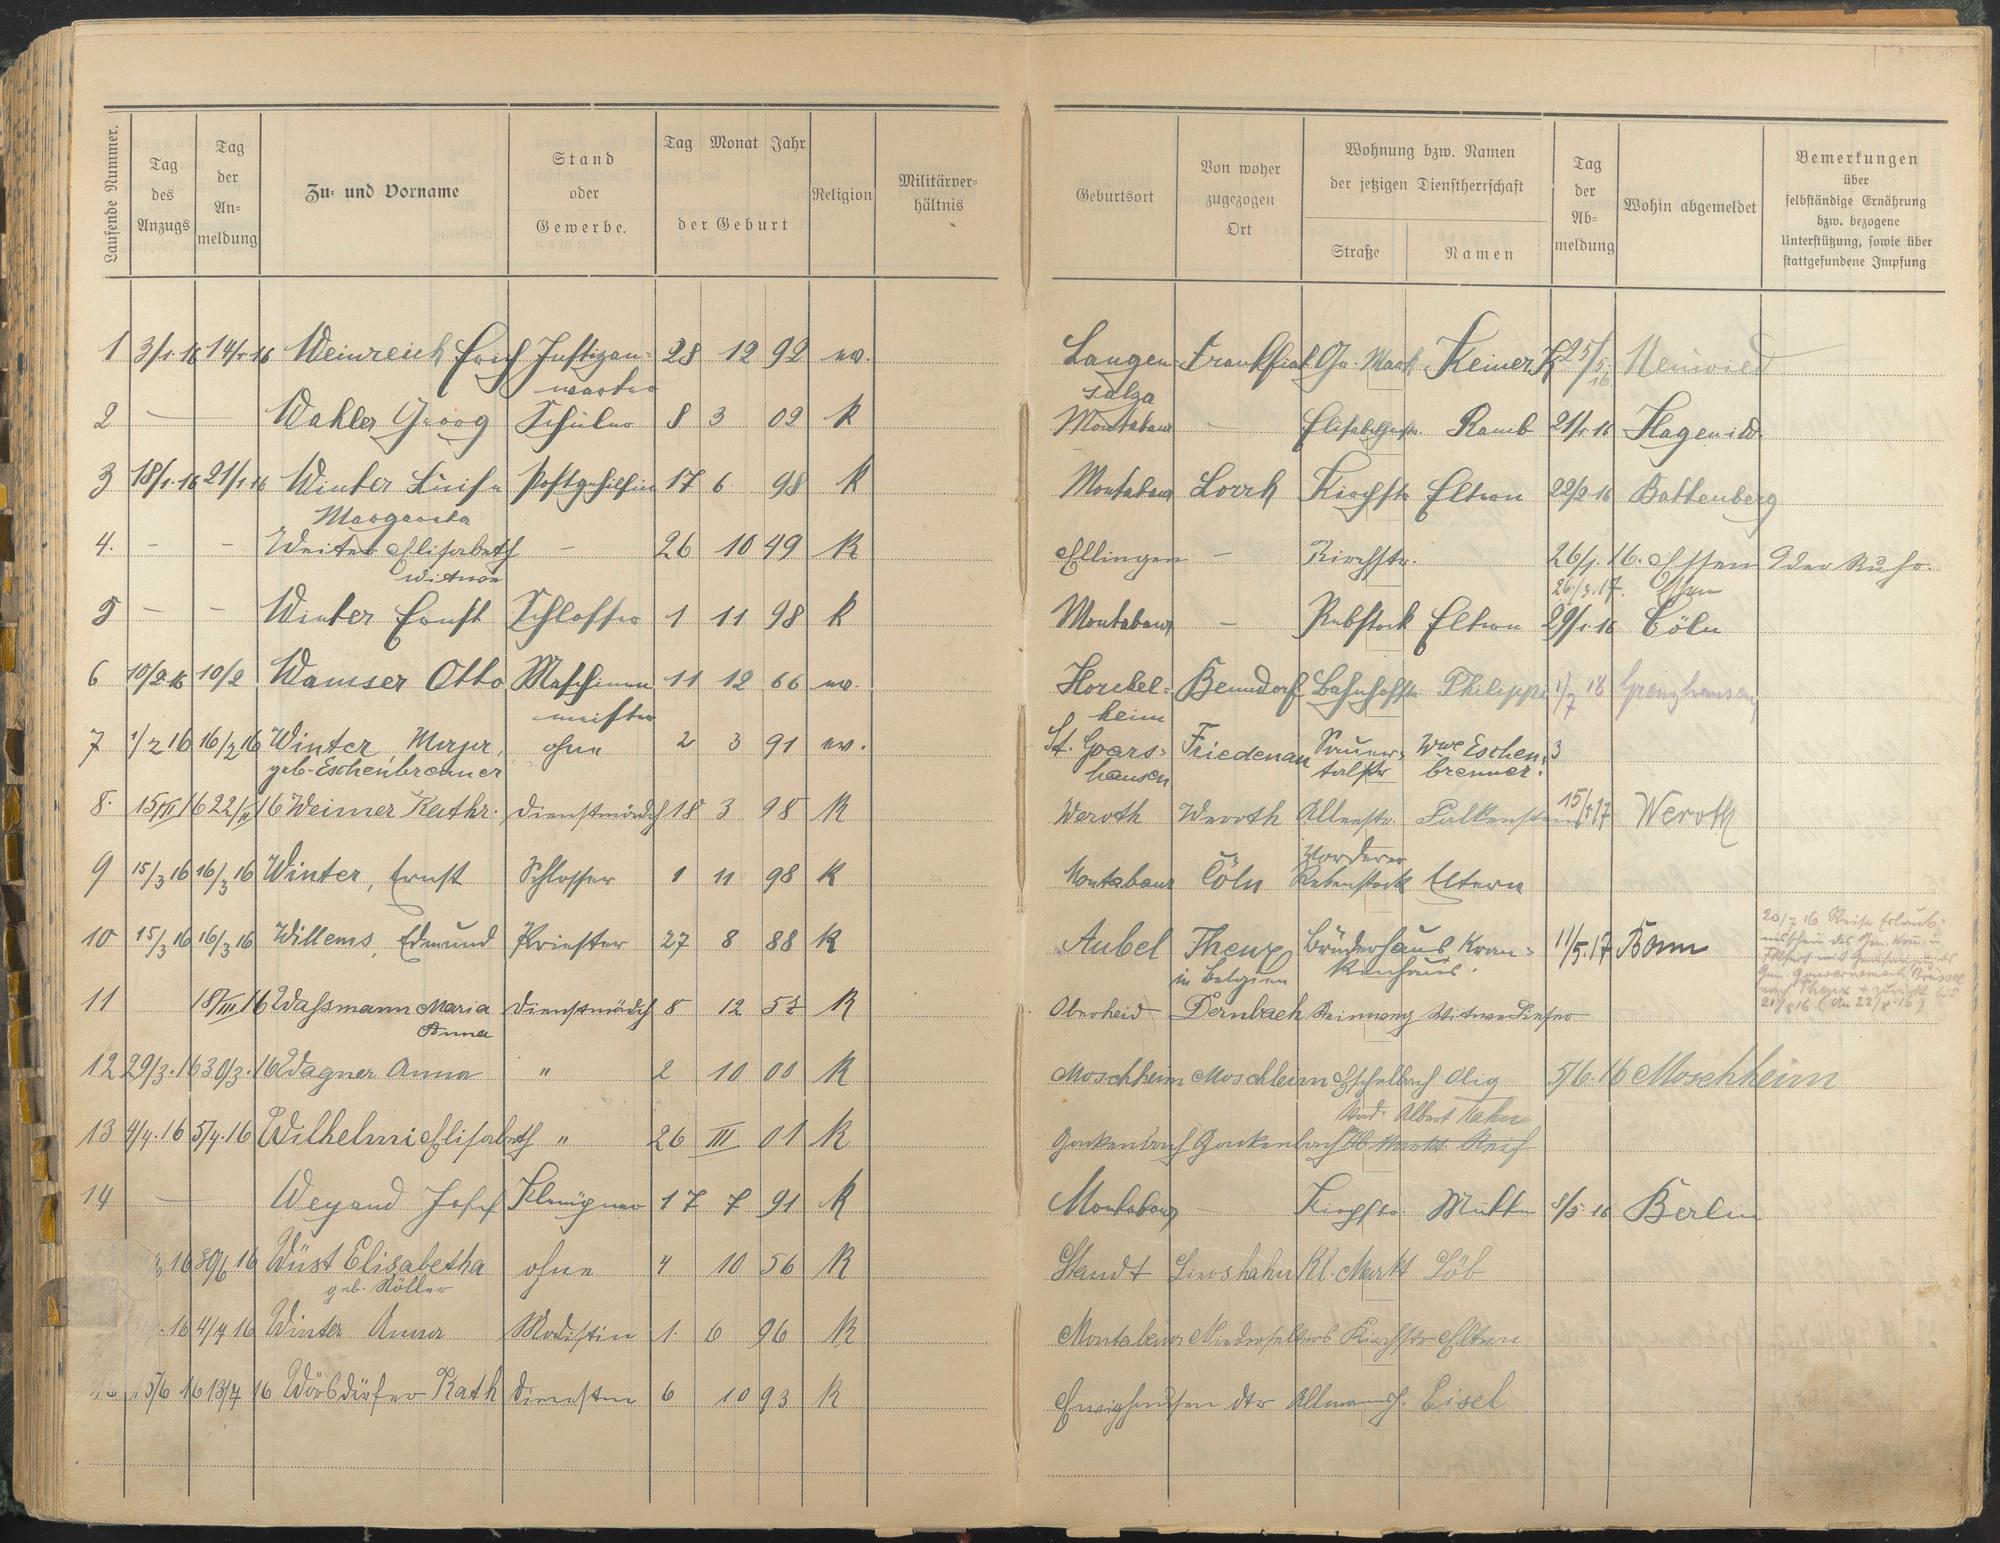 Laufende Nummer.
Tag des Anzugs
Tag der An-meldung
Zu- und Vorname
Stand oder Gewerbe.
Tag Monat Jahr
der Geburt
Religion
Militärver-hältnis
Geburtsort
Von woher zugezogen Ort
Wohnung bzw. Namen
der jetzigen Dienstherrschaft
Straße
Namen
Tag der Ab-meldung
Wohin abgemeldet
Bemerkungen
über
selbständige Ernährung
bzw. bezogene
Unterstützung, sowie über
stattgefundene Impfung
1 3/1.16 14/1.16 Weinreich Erich Justizan- 28 12 92 ev. Langen- Frankfurt Gr. Markt 25/5 16 Neuwied
warter salza
2 — Wahler Georg Schüler 8 3 02 k Montabaur - Elisabethenstr. Ramb 21/1.16 Hagen i.W.
3 18/1.16 21/1.16 Winter Luise Postgehilfin 17 6. 98 k Montabaur Lorch Kirchstr Eltern 22/2.16 Battenberg
Margareta
4. - - Weiter Elisabeth - 26 10 49 K Ellingen - Kirchstr. 26/1.16. Essen a der Ruhr.
Witwe 26/3.17. Essen
5 - - Winter Ernst Schlosser 1 11 98 k Montabaur - Rebstock Eltern 29/1.16 Cöln
6 10/2.16 10/2 Wamser Otto Maschinen 11 12 66 ev. Horchel- Benndorf Bahnhofstr Philippi 1/7 18 Grenzhausen
meister heim
7 1/2 16 16/2 16 Winter, ohne 2 3 91 ev. St. Goars- Friedenau Sauer- Wwe Eschen- 3
geb. Eschenbrenner hausen talstr brenner.
8. 15/II 16 22/II 16 Weimer Kathr. Dienstmädch 18 3 98 K Weroth Weroth Alleestr. Falkenstein 15/1.17 Weroth
9 15/3 16 16/3 16 Winter, Ernst Schlosser 1 11 98 K Montabaur Cöln Vorderer Rebenstock Eltern
10 15/3 16 16/3 16 Willems, Edmund Priester 27 8 88 K Aubel Theux Brüderhaus Kran- 11/5.17 Bonn
in Belgien kenhaus.
11 18/III 16 Wassmann Maria Dienstmädch 8 12 57 K Oberheid Dernbach Steinweg Witwe
Anna
12 29/3.16 30/3.16 Wagner Anna " 2 10 00 K Moschheim Moschheim Eschelbach Olig 5/6.16 Moschheim
13 4/4.16 5/4.16 Wilhelmi Elisabeth " 26 III 01 K Gackenbach Gackenbach Markt Reif
Albert Kahn
14 — Weyand Josef Klempner 17 7 91 k Montabaur - Kirchstr. Mutter 8/5.16 Berlin
16 30/6 16 Wüst Elisabetha ohne 4 10 56 K Staudt Kl. Markt Löb
geb. Nöller
16 4/7 16 Winter Anna Modistin 1. 6 96 K Montabaur Niederselters Kirchstr Eltern
15/6 16 13/7 16 Wörsdörfer Kath Diensten 6 10 93 K Ewighausen dto Eisel